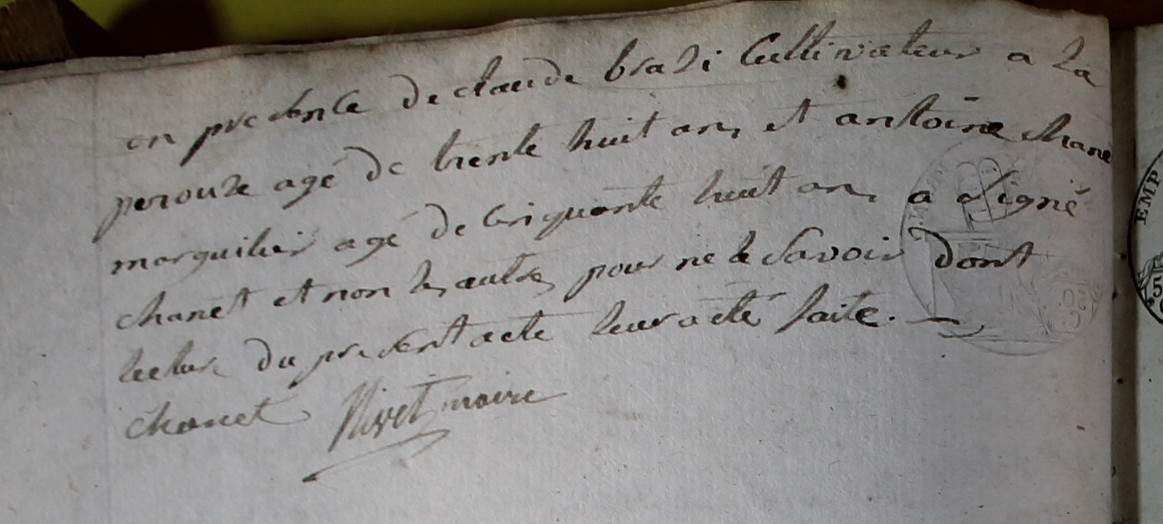 en presence de claude brasi Cultivateur a la
perouze agé de trente huit ans et antoine chane
marguilier agé de cinquante huit ans a signé
chanet et non les autres pour ne le savoir dont
lecture du present acte leur a été faite.
chanet Rivet maire
EMP